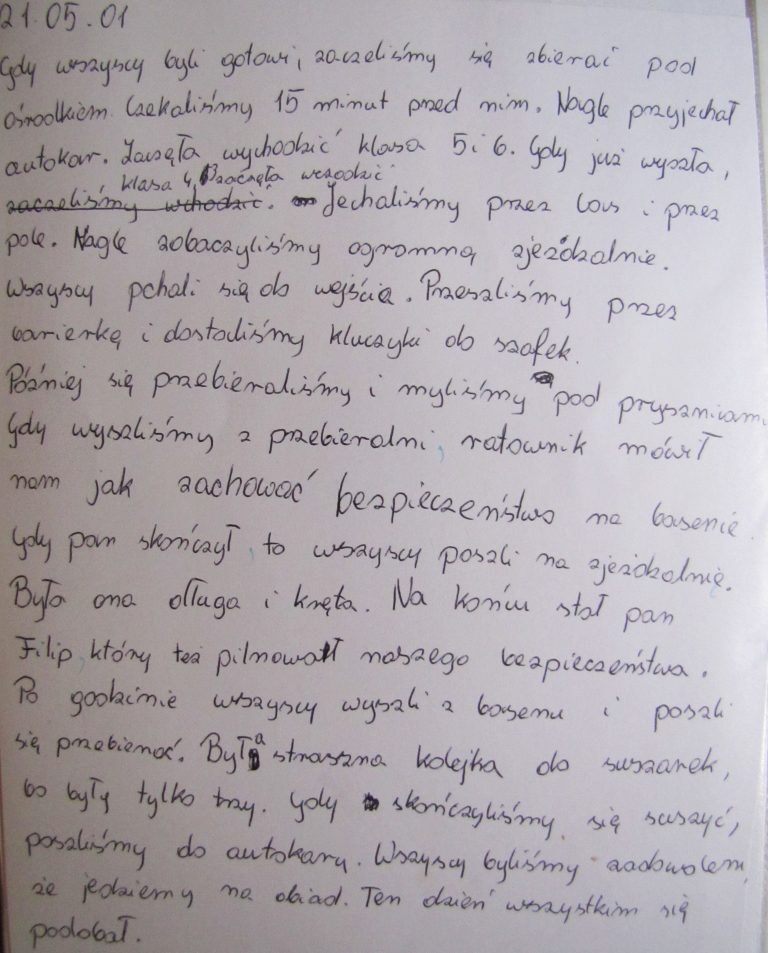 21.05.01
Gdy wszyscy byli gotowi, zaczeliśmy się zbierać pod
ośrodkiem. Czekaliśmy 15 minut przed nim. Nagle przyjechał
autokar. Zaczęła wychodzić klasa 5 i 6. Gdy już wyszła,
klasa 4, zaczęła wchodzić.
zaczeliśmy wchodzić. Jechaliśmy przez las i przez
pole. Nagle zobaczyliśmy ogromną zjeżdżalnie.
Wszyscy pchali się do wejścia. Przeszliśmy przez
barierkę i dostaliśmy kluczyki do szafek.
Później się przebieraliśmy i myliśmy pod prysznicami.
Gdy wyszliśmy z przebieralni, ratownik mówił
nam jak zachować bezpieczeństwo na basenie.
Gdy pan skończył, to wszyscy poszli na zjeżdżalnie.
Była ona długa i kręta. Na końcu stał pan
Filip, który też pilnował naszego bezpieczeństwa.
Po godzinie wszyscy wyszli z basenu i poszli
się przebierać. Była straszna kolejka do suszarek,
bo były tylko trzy. Gdy skończyliśmy się suszyć,
poszliśmy do autokaru. Wszyscy byliśmy zadowoleni,
że jedziemy na obiad. Ten dzień wszystkim się
podobał.